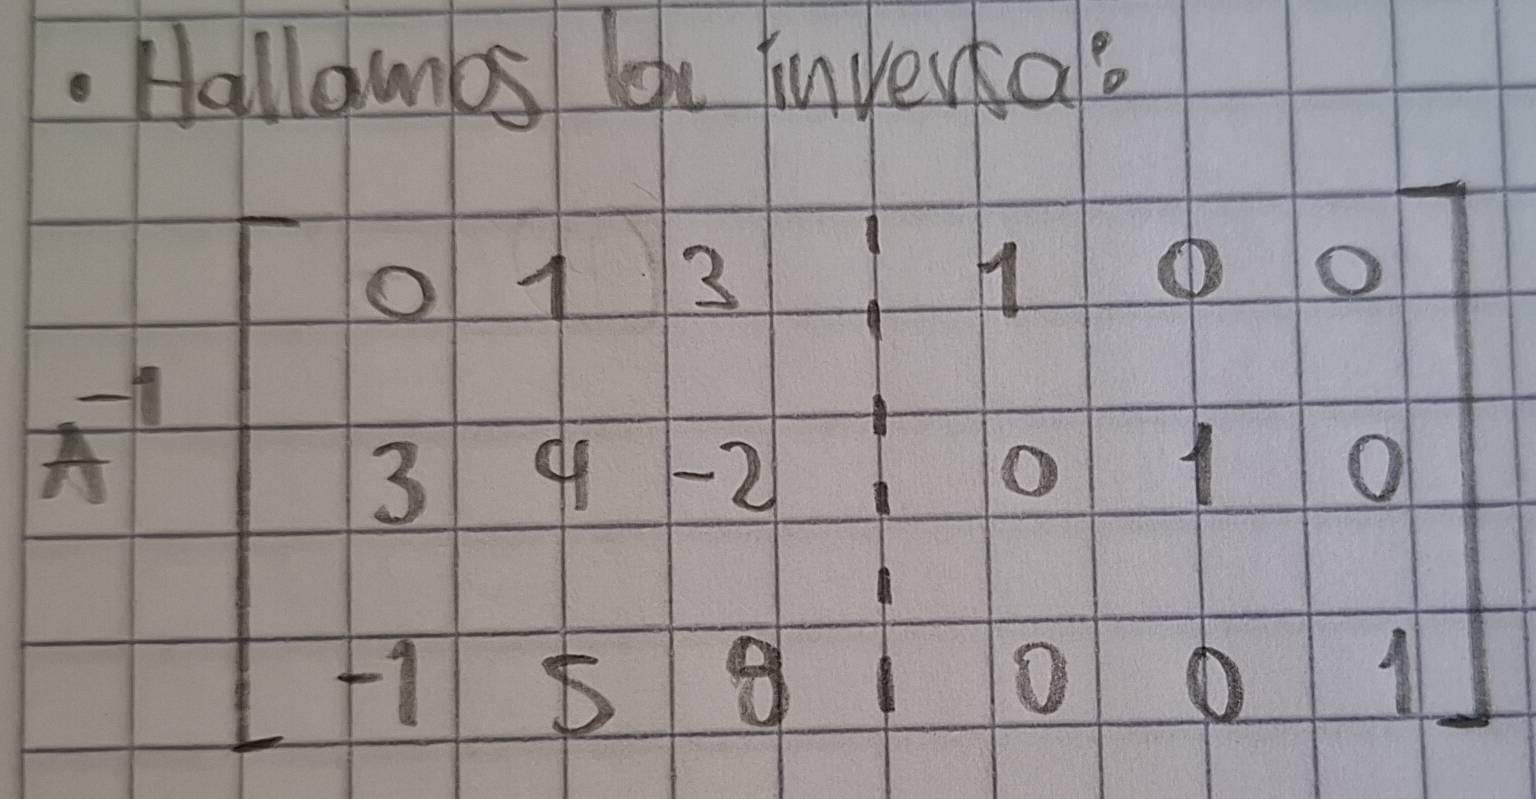 • Hallamos la inversa:
0 1 3 1 0 0
A⁻¹
3 4 -2 0 1 0
-1 5 8 0 0 1